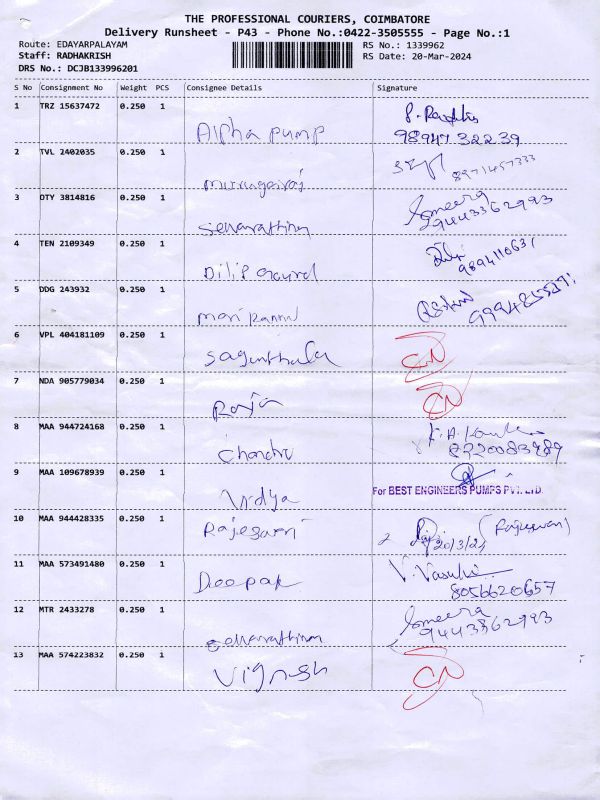 THE PROFESSIONAL COURIERS, COIMBATORE
Delivery Runsheet - P43 - Phone No.:0422-3505555 - Page No.:1
Route: EDAYARPALAYAM RS No.: 1339962
Staff: RADHAKRISH RS Date: 20-Mar-2024
DRS No.: DCJB133996201
S No Consignment No Weight PCS Consignee Details Signature
1 TRZ 15637472 0.250 1
Alpha pump 98947 32239
2 TVL 2402035 0.250 1
8971457333
3 OTY 3814816 0.250 1
Sameera
9443362993
4 TEN 2109349 0.250 1
Dilip
5 DDG 243932 0.250 1
6 VPL 404181109 0.250 1
Sagunthala CN
7 NDA 905779034 0.250 1
Raja CN
8 MAA 944724168 0.250 1
Chandru 8220083989
9 MAA 109678939 0.250 1
Vidya For BEST ENGINEERS PUMPS PVT. LTD.
10 MAA 944428335 0.250 1
Rajeswari 20/3/24
11 MAA 573491480 0.250 1 V. Vasuki
Deepak 8056620657
12 MTR 2433278 0.250 1 Sameera
9443362993
13 MAA 574223832 0.250 1
Vignesh CN